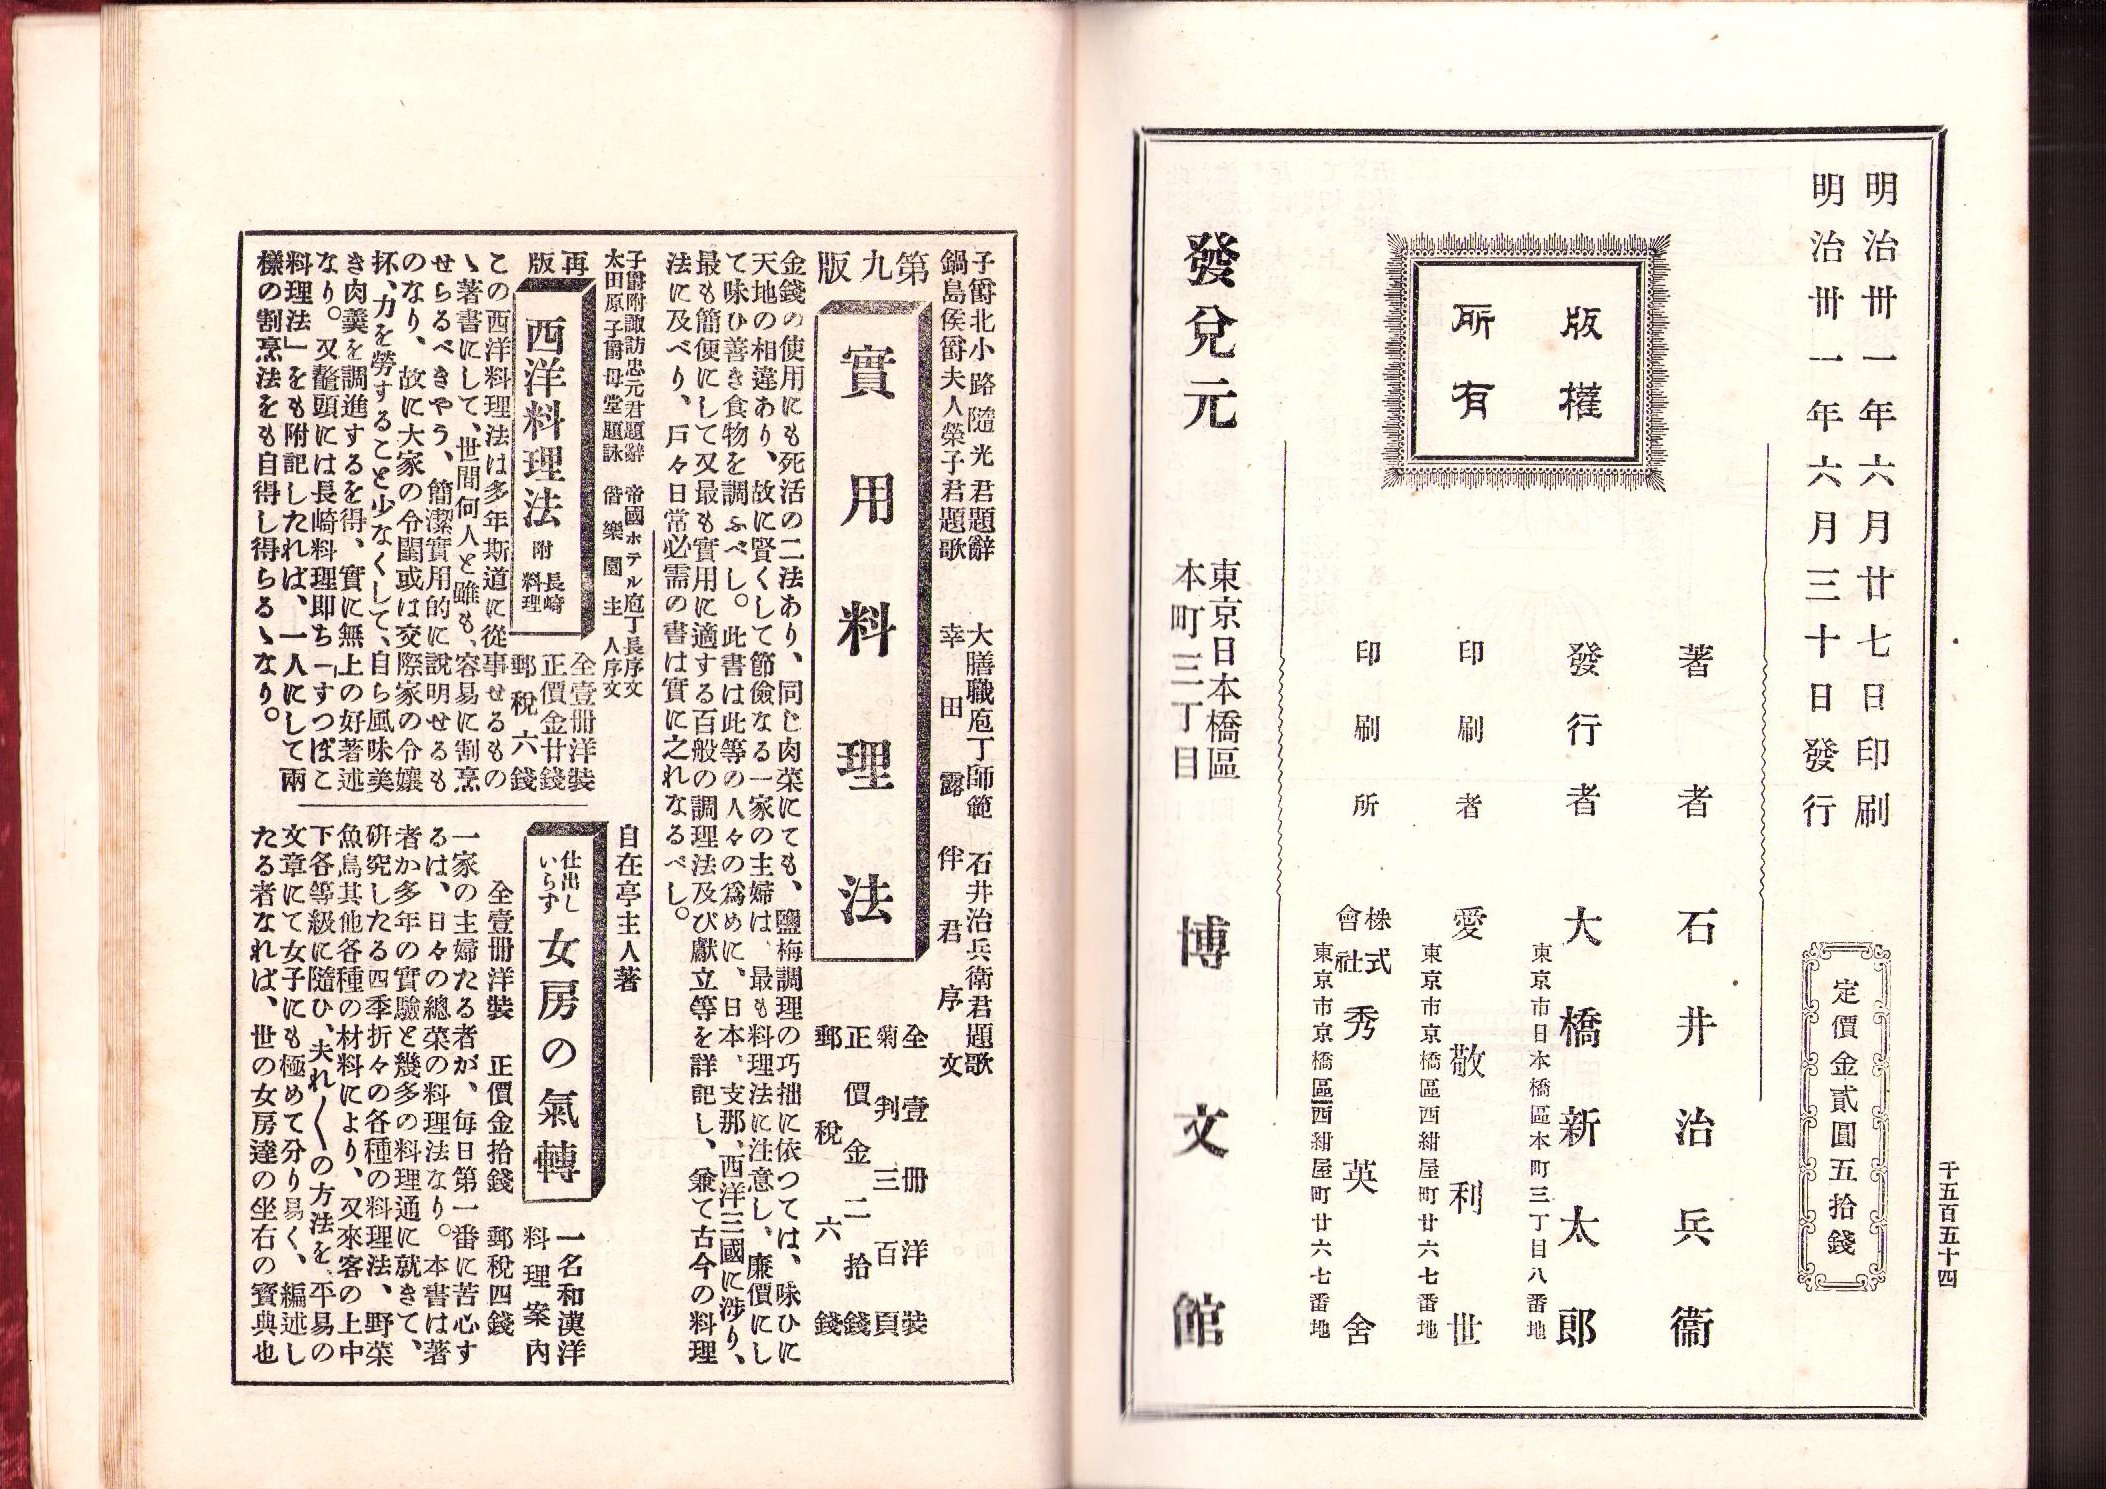 千五百五十四
明治卅一年六月廿七日印刷
明治卅一年六月三十日發行
定價金貳圓五拾錢
版權
所有
著者 石井治兵衞
發行者 大橋新太郎
東京市日本橋區本町三丁目八番地
印刷者 愛敬利世
東京市京橋區西紺屋町廿六七番地
印刷所 株式會社 秀英舍
東京市京橋區西紺屋町廿六七番地
發兌元 東京日本橋區本町三丁目 博文館
子爵北小路隨光君題辭 大膳職庖丁師範 石井治兵衛君題歌
鍋島侯爵夫人榮子君題歌 幸田露伴君序文
第九版
實用料理法
全壹冊洋裝
菊判三百頁
正價金二拾錢
郵稅六錢
金錢の使用にも死活の二法あり、同じ肉菜にても、鹽梅調理の巧拙に依つては、味ひに
天地の相違あり、故に賢くして節儉なる一家の主婦は、最も料理法に注意し、廉價にし
て味ひ善き食物を調ふべし。此書は此等の人々の爲めに、日本、支那、西洋三國に涉り、
最も簡便にして又最も實用に適する百般の調理法及び獻立等を詳記し、兼て古今の料理
法に及べり、戸々日常必需の書は實に之れなるべし。
子爵附諏訪忠元君題辭 帝國ホテル庖丁長序文
太田原子爵母堂題詠 偕樂園主人序文
再版
西洋料理法 附 長崎料理
全壹冊洋裝
正價金廿錢
郵稅六錢
この西洋料理法は多年斯道に從事せるもの
ゝ著書にして、世間何人と雖も、容易に割烹
せらるべきやう、簡潔實用的に說明せるも
のなり、故に大家の令閨或は交際家の令孃
抔、力を勞すること少なくして、自ら風味美
き肉羹を調進するを得、實に無上の好著述
なり。又鼇頭には長崎料理即ち「すつぽこ
料理法」をも附記したれば、一人にして兩
樣の割烹法をも自得し得らるゝなり。
自在亭主人著
仕出しいらす 女房の氣轉
一名和漢洋
料理案内
全壹冊洋裝 正價金拾錢 郵稅四錢
一家の主婦たる者が、毎日第一番に苦心す
るは、日々の總菜の料理法なり。本書は著
者か多年の實驗と幾多の料理通に就きて、
研究したる四季折々の各種の料理法、野菜
魚鳥其他各種の材料により、又來客の上中
下各等級に隨ひ、夫れ〳〵の方法を、平易の
文章にて女子にも極めて分り易く、編述し
たる者なれば、世の女房達の坐右の寶典也